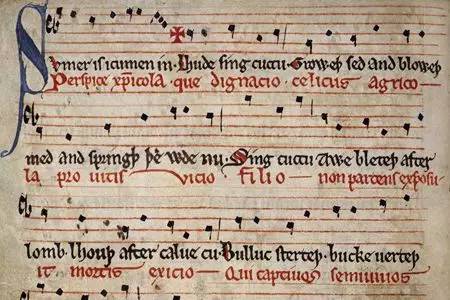 Sumer is icumen in· Lhude sing cuccu· Groweþ sed and bloweþ
Perspice xp̄icola· que dignacio· celicus agrico—
med and springþ þe wde nu· Sing cuccu Awe bleteþ after
la pro uitis vicio filio— non parcens exposu-
lomb lhouþ after calue cu· Bulluc sterteþ· bucke uerteþ
it mortis exicio— Qui captiuos semiuiuos